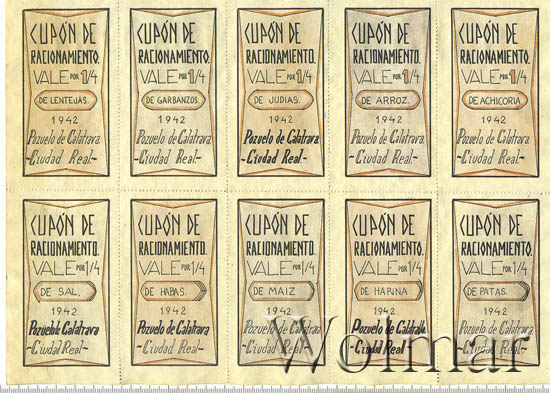 CUPÓN DE
RACIONAMIENTO.
VALE POR 1/4
DE LENTEJAS.
1942
Pozuelo de Calatrava
-Ciudad Real-
CUPÓN DE
RACIONAMIENTO.
VALE POR 1/4
DE GARBANZOS.
1942
Pozuelo de Calatrava
-Ciudad Real-
CUPÓN DE
RACIONAMIENTO.
VALE POR 1/4
DE JUDIAS.
1942
Pozuelo de Calatrava
-Ciudad Real-
CUPÓN DE
RACIONAMIENTO.
VALE POR 1/4
DE ARROZ.
1942
Pozuelo de Calatrava
-Ciudad Real-
CUPÓN DE
RACIONAMIENTO.
VALE POR 1/4
DE ACHICORIA
1942
Pozuelo de Calatrava
-Ciudad Real-
CUPÓN DE
RACIONAMIENTO.
VALE POR 1/4
DE SAL.
1942
Pozuelo de Calatrava
-Ciudad Real-
CUPÓN DE
RACIONAMIENTO.
VALE POR 1/4
DE HABAS.
1942
Pozuelo de Calatrava
-Ciudad Real-
CUPÓN DE
RACIONAMIENTO.
VALE POR 1/4
DE MAIZ
1942
Pozuelo de Calatrava
-Ciudad Real-
CUPÓN DE
RACIONAMIENTO.
VALE POR 1/4
DE HARINA
1942
Pozuelo de Calatrava
-Ciudad Real-
CUPÓN DE
RACIONAMIENTO.
VALE POR 1/4
DE PATAS.
1942
Pozuelo de Calatrava
-Ciudad Real-
Wolmar